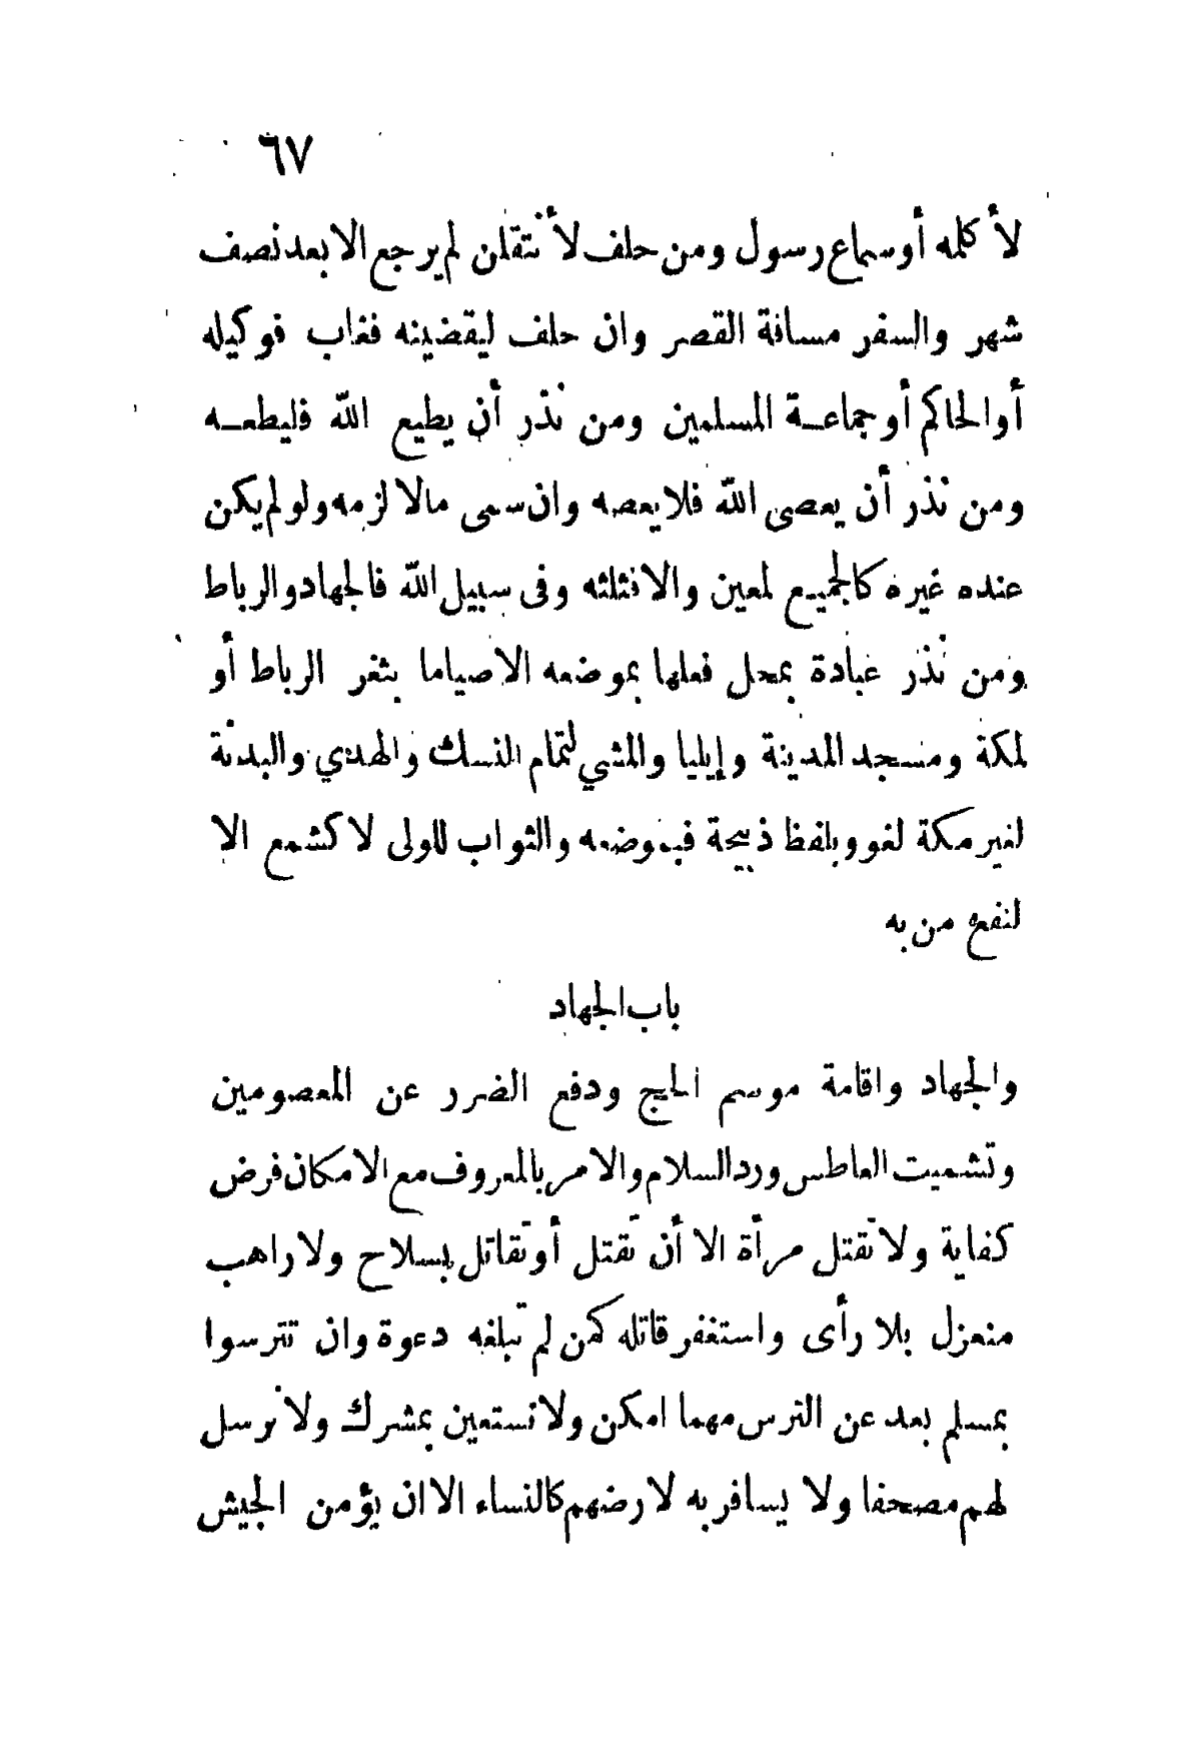 ٦٧
لأ كلمه أوسماع رسول ومن حلف لأ نتقلن لم يرجع الا بعد نصف
شهر والسفر مسافة القصر وان حلف ليقضينه فغاب فوكيله
أوالحاكم أوجماعـة المسلمين ومن نذر أن يطيع اللّه فليطعـه
ومن نذر أن يعصى اللّه فلا يعصه وان سمى مالا لزمه ولو لم يكن
عنده غيره كالجميع لمعين والا فثلثه وفى سبيل اللّه فالجهاد والرباط
ومن نذر عبادة بمحل فعلها بموضعه الا صياما بثغر الرباط أو
لمكة ومسجد المدينة وإيليا والمشي لتمام النسك والهدي والبدنة
لغير مكة لغو وبلفظ ذبيحة فبموضعه والثواب للولى لا كشمع الا
لنفع من به
باب الجهاد
والجهاد واقامة موسم الحج ودفع الضرر عن المعصومين
وتشميت العاطس ورد السلام والامر بالمعروف مع الامكان فرض
كفاية ولا تقتل مرأة الا أن تقتل أو تقاتل بسلاح ولا راهب
منعزل بلا رأى واستغفر قاتله كمن لم تبلغه دعوة وان تترسوا
بمسلم بعد عن الترس مهما امكن ولا نستعين بمشرك ولا نرسل
لهم مصحفا ولا يسافر به لارضهم كالنساء الا ان يؤمن الجيش